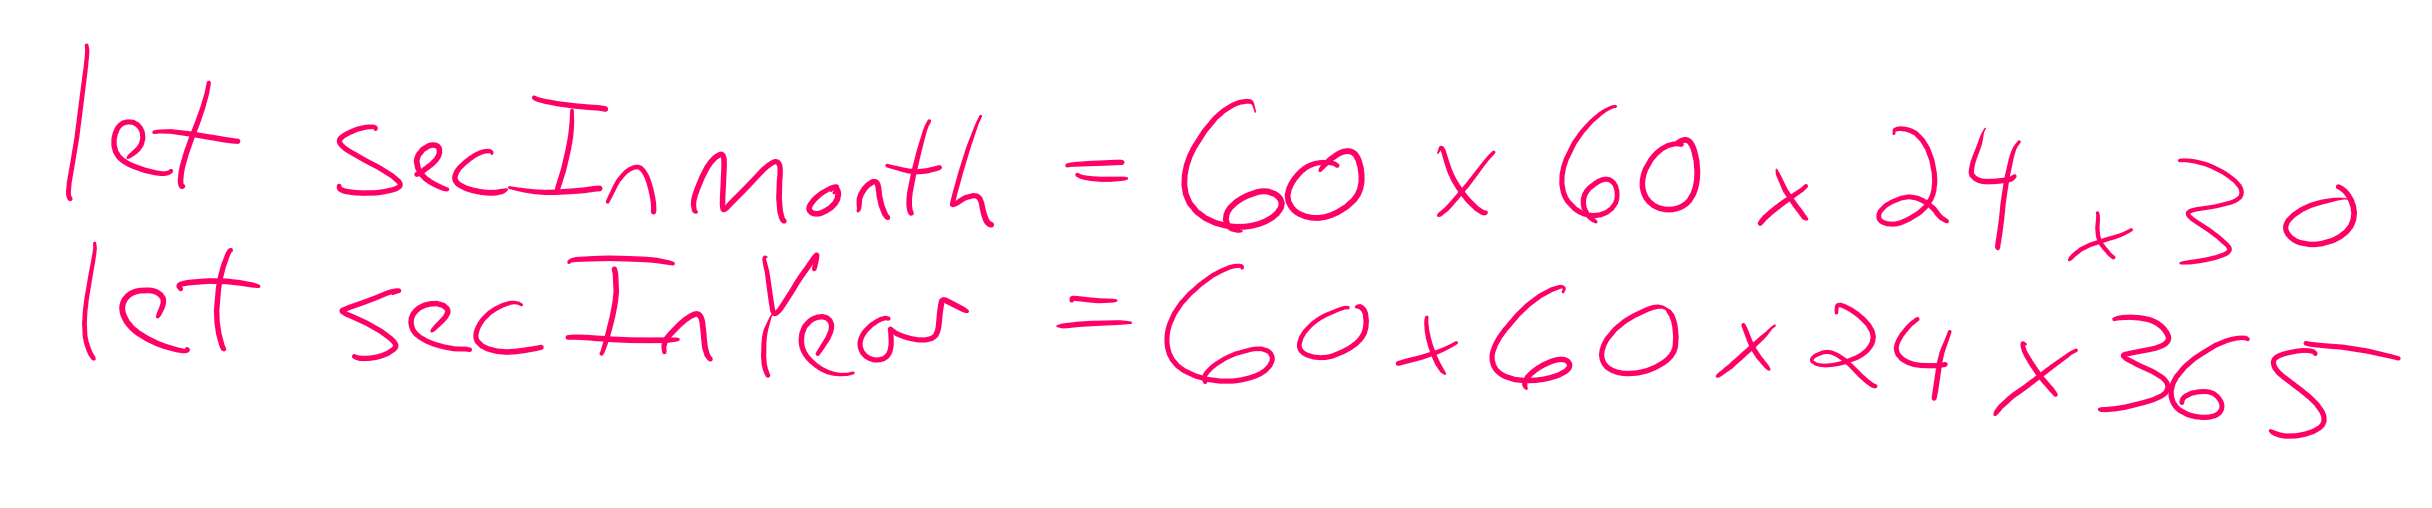 let secInMonth = 60 x 60 x 24 x 30
let secInYear = 60 x 60 x 24 x 365